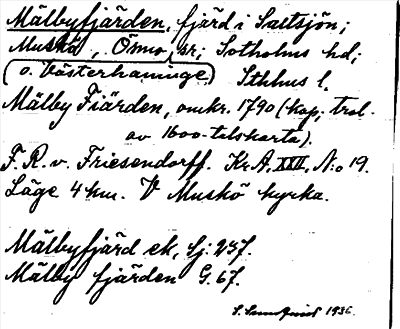 Mälbyfjärden, fjärd i Saltsjön;
Muskö, Ösmo sr; Sotholms hd;
(o. Västerhaninge) Sthlms l.
Mälby Fiärden, omkr. 1790 (kop, trol.
av 1600-talskarta).
F. R. v. Friesendorff. Kr. A. XXII, N:o 19.
Läge 4 km. V Muskö kyrka.
Mälbyfjärd ek, sj. 237.
Mälby fjärden G. 67.
1936.